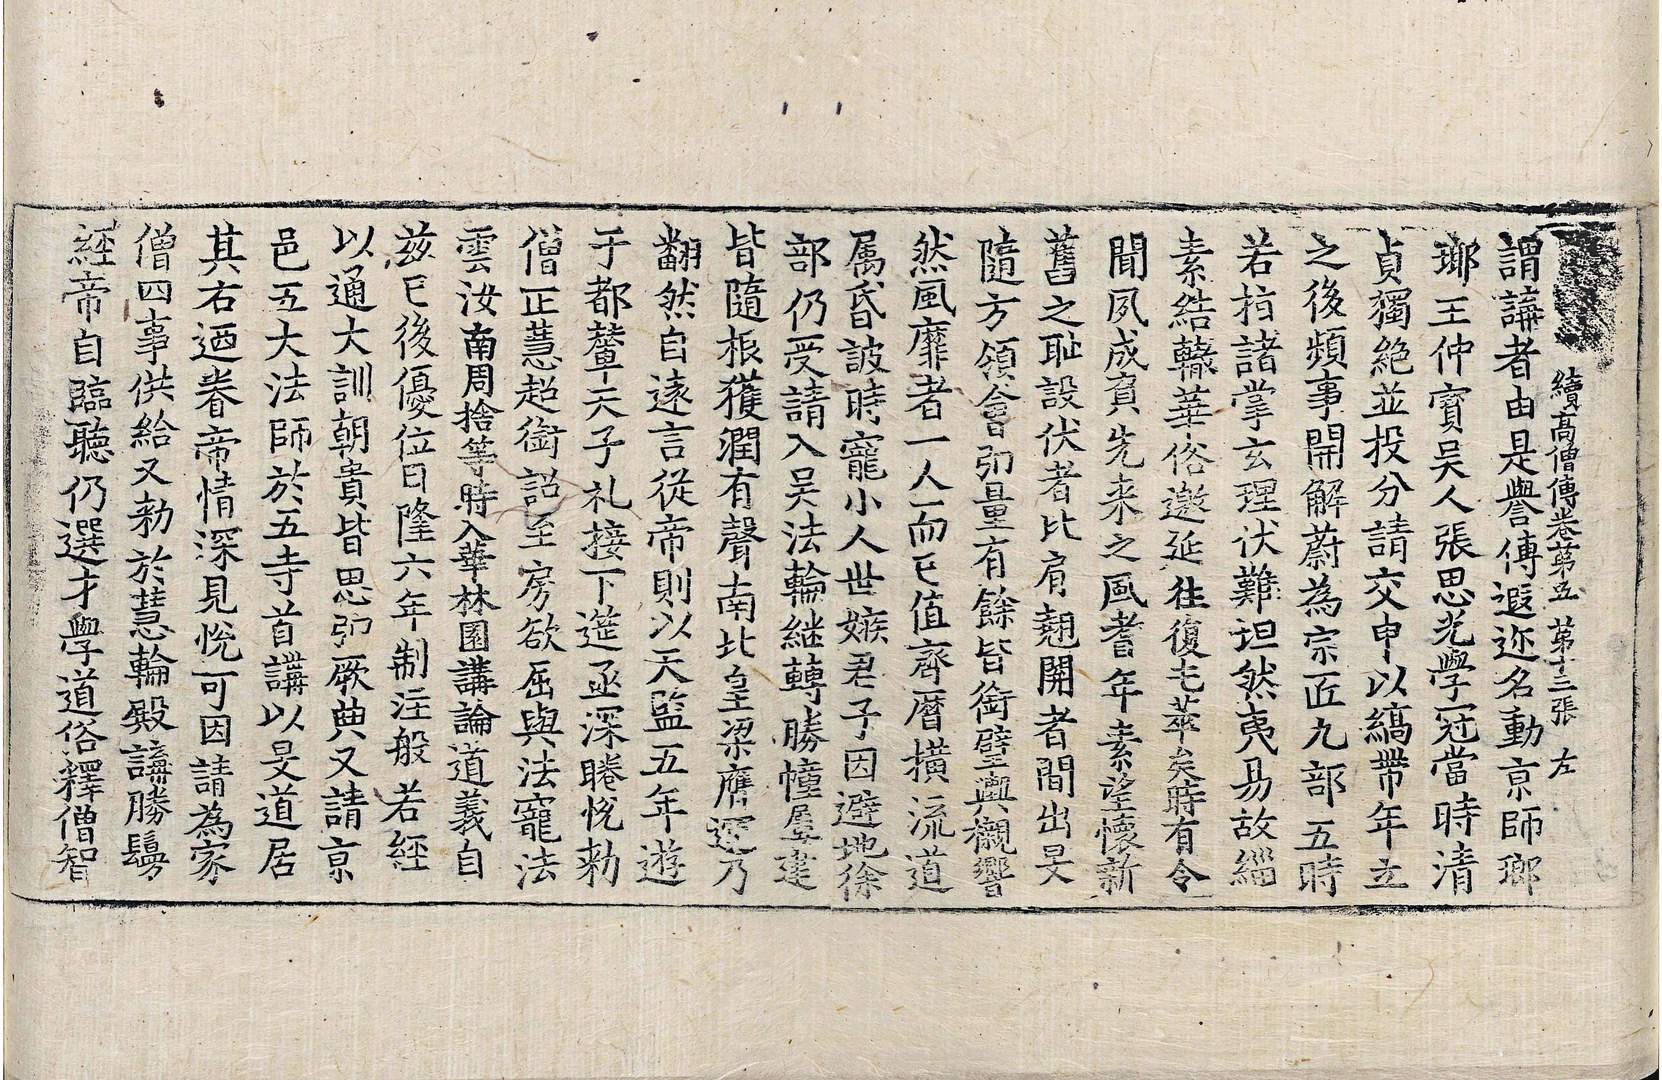 續高僧傳卷苐五 苐十三張 左
謂講者由是譽傳遐迩名動京師瑯
瑯王仲寶吳人張思光學冠當時清
貞獨絶並投分請交申以縞帶年立
之後頻事開解蔚為宗匠九部五時
若指諸掌玄理伏難坦然夷易故緇
素結轍華俗邀延往復屯萃矣時有令
聞夙成賓先来之風耆年素望懷新
舊之耻設伏者比肩翹開者間出旻
隨方領會弘量有餘皆銜璧輿櫬響
然風靡者一人而已值齊曆橫流道
属昏詖時寵小人世嫉君子因避地徐
部仍受請入吳法輪継轉勝幢屢建
皆隨根獲潤有聲南北皇梁膺運乃
翻然自遠言從帝則以天監五年遊
于都輦天子礼接下筵亟深睠悅勑
僧正慧超銜詔至房欲屈與法寵法
雲汝南周捨等時入華林園講論道義自
茲已後優位日隆六年制注般若經
以通大訓朝貴皆思弘厥典又請京
邑五大法師於五寺首講以旻道居
其右迺眷帝情深見悅可因請為家
僧四事供給又勑於慧輪殿講勝鬘
經帝自臨聽仍選才學道俗釋僧智